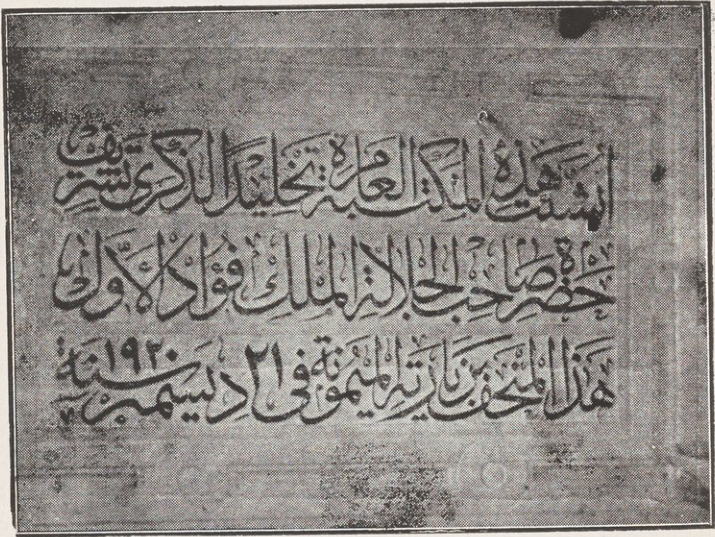 أنشئت هذه المكتبة العامرة تخليدًا لذكرى تشريف
حضرة صاحب الجلالة الملك فؤاد الأول
هذا المتحف بزيارته الميمونة فى ٢١ ديسمبر سنة ١٩٢٠